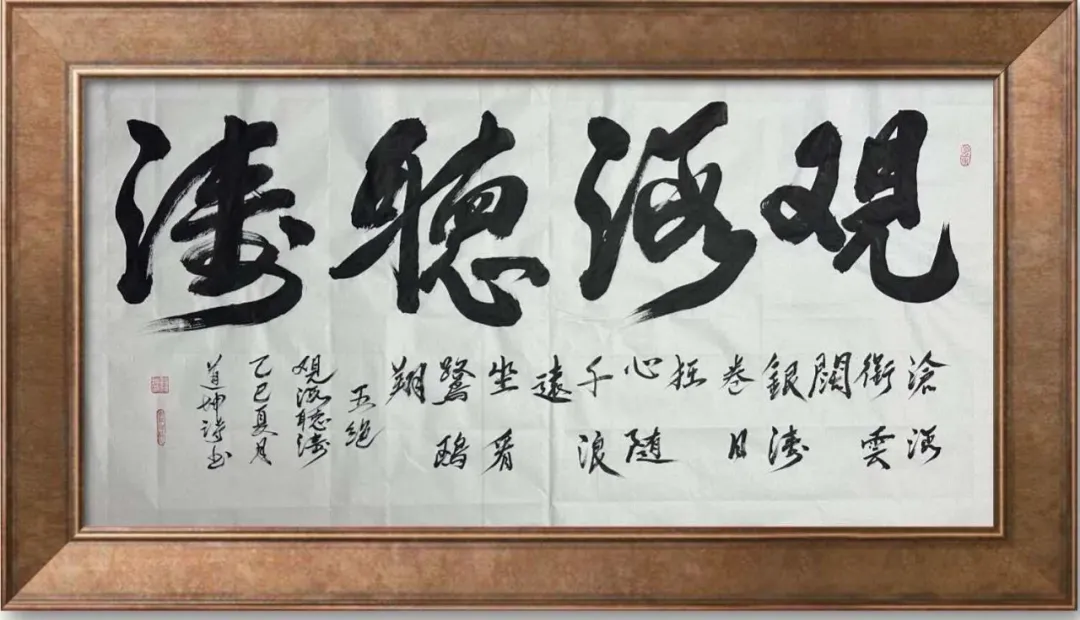 观海聽濤
滄海
銜雲
闊
銀濤
卷日
狂
心随
千浪
遠
坐看
鷺鷗
翔
五絕
觀海聽濤
乙巳夏月
道坤詩书